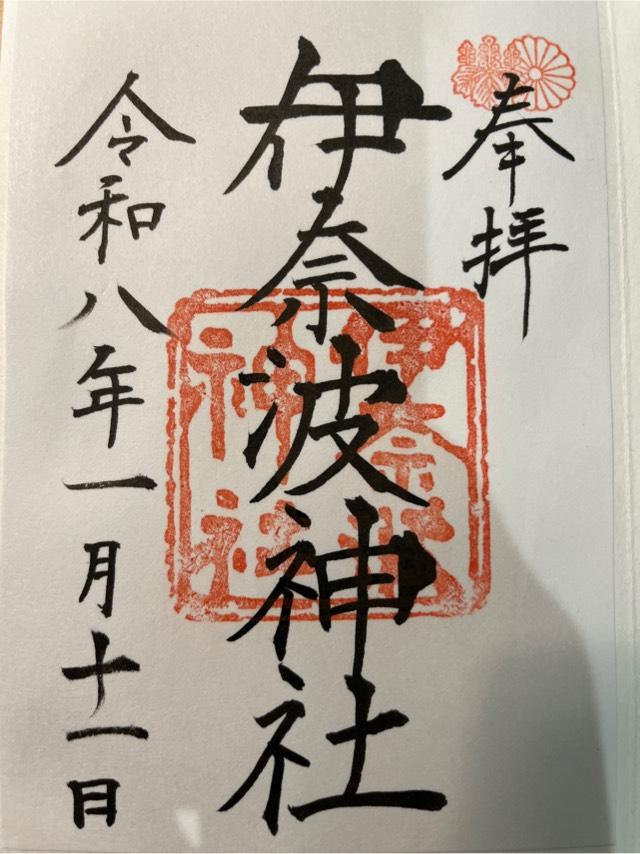 奉拝
伊奈波神社
伊奈波
神社
令和八年一月十一日